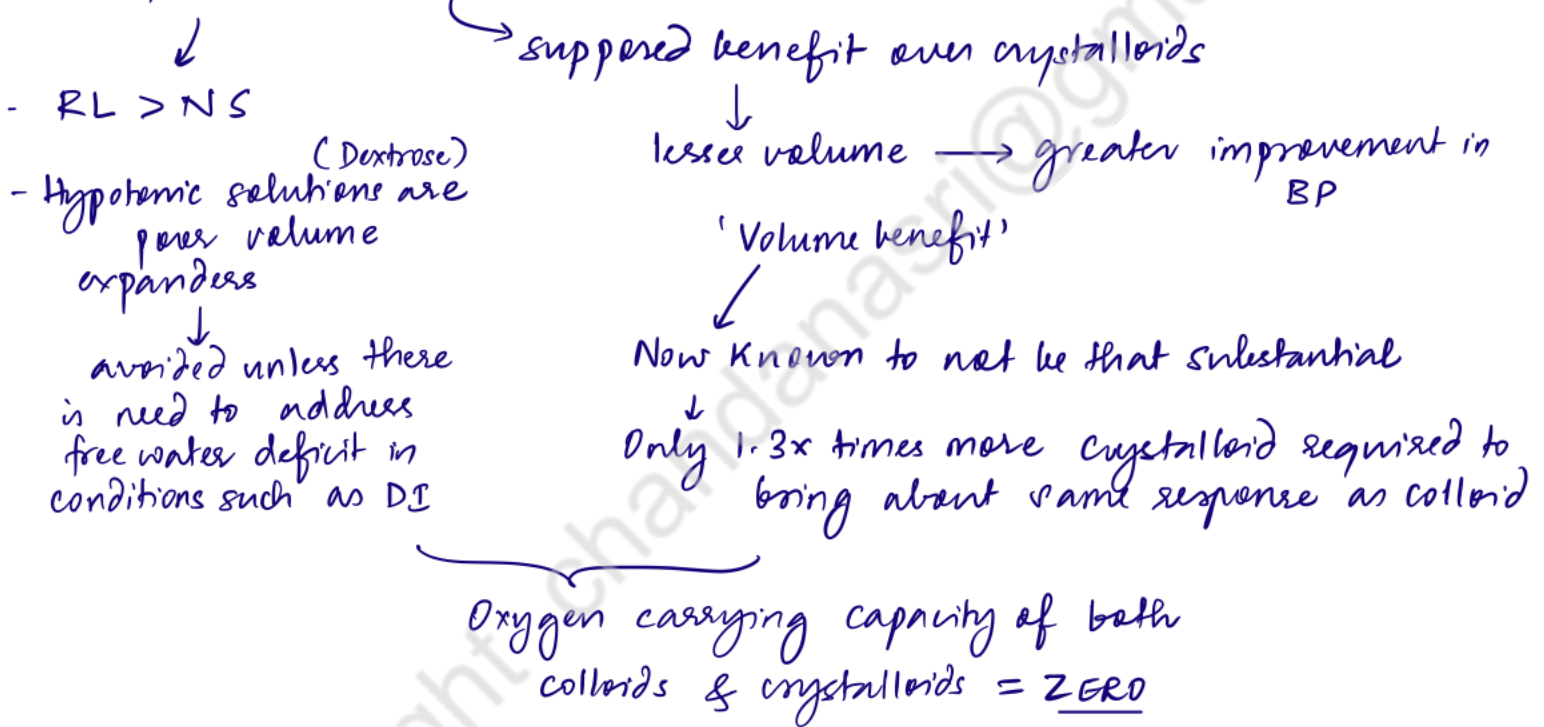 - RL > NS
(Dextrose)
- Hypotonic solutions are
poor volume
expanders
avoided unless there
is need to address
free water deficit in
conditions such as DI
supposed benefit over crystalloids
lesser volume → greater improvement in
BP
'Volume benefit'
Now Known to not be that substantial
Only 1.3x times more crystalloid required to
bring about same response as colloid
Oxygen carrying capacity of both
colloids & crystalloids = ZERO
chandanasri@gm